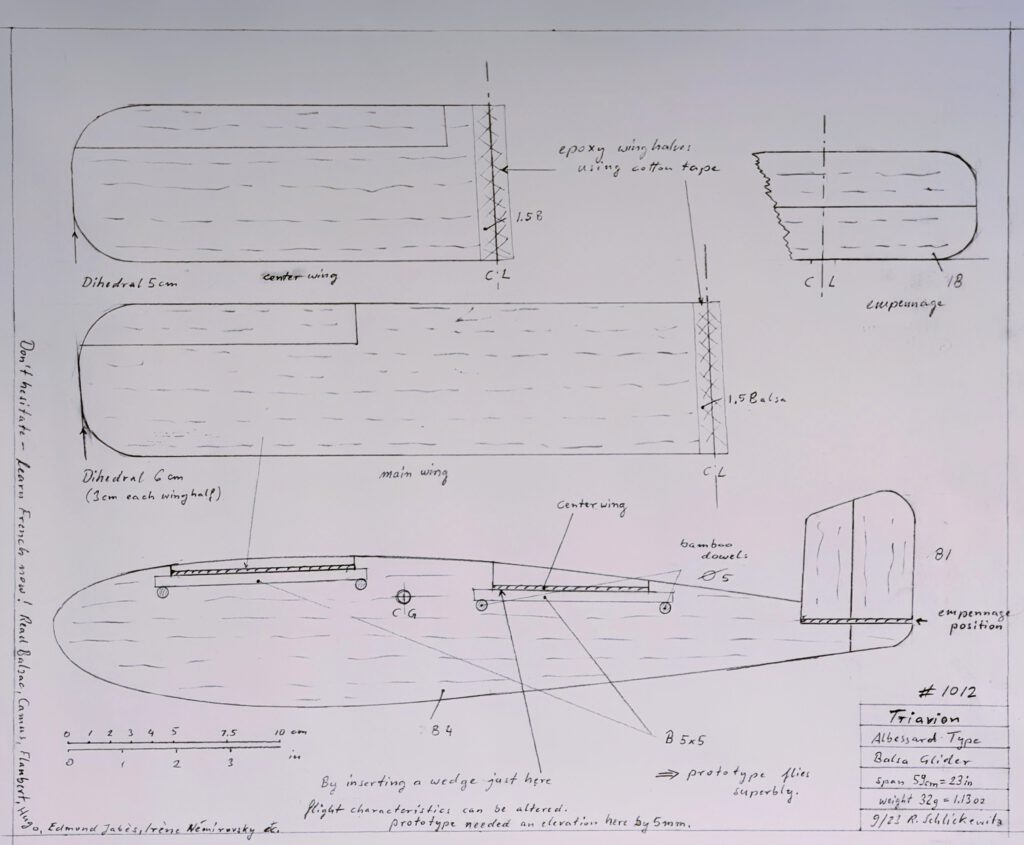 epoxy winghalves
using cotton tape
1.5B
Dihedral 5 cm
center wing
C L
C L
1B
empennage
1.5 Balsa
Dihedral 6 cm
(3cm each winghalf)
main wing
C L
center wing
bamboo
dowels
Ø 5
B1
empennage
position
C G
B 4
B 5x5
0 1 2 3 4 5 7.5 10 cm
0 1 2 3 in
By inserting a wedge just here
flight characteristics can be altered.
prototype needed an elevation here by 5mm.
⇒ prototype flies
superbly.
# 1012
Triavion
Albessard-Type
Balsa Glider
span 59cm = 23in
weight 32g = 1.13oz
9/23 R. Schlickewitz
Don't hesitate - learn French now! Read Balzac, Camus, Flaubert, Hugo, Edmond Jabès, Irène Némirovsky &c.